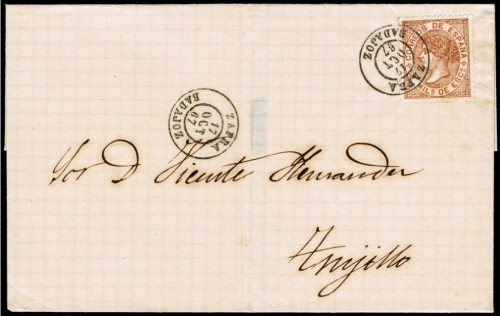 CORREOS DE ESPAÑA
MILs DE ESCo
ZAFRA
17
OCT
67
BADAJOZ
ZAFRA
17
OCT
67
BADAJOZ
Sor D Vicente Hernander
Trujillo